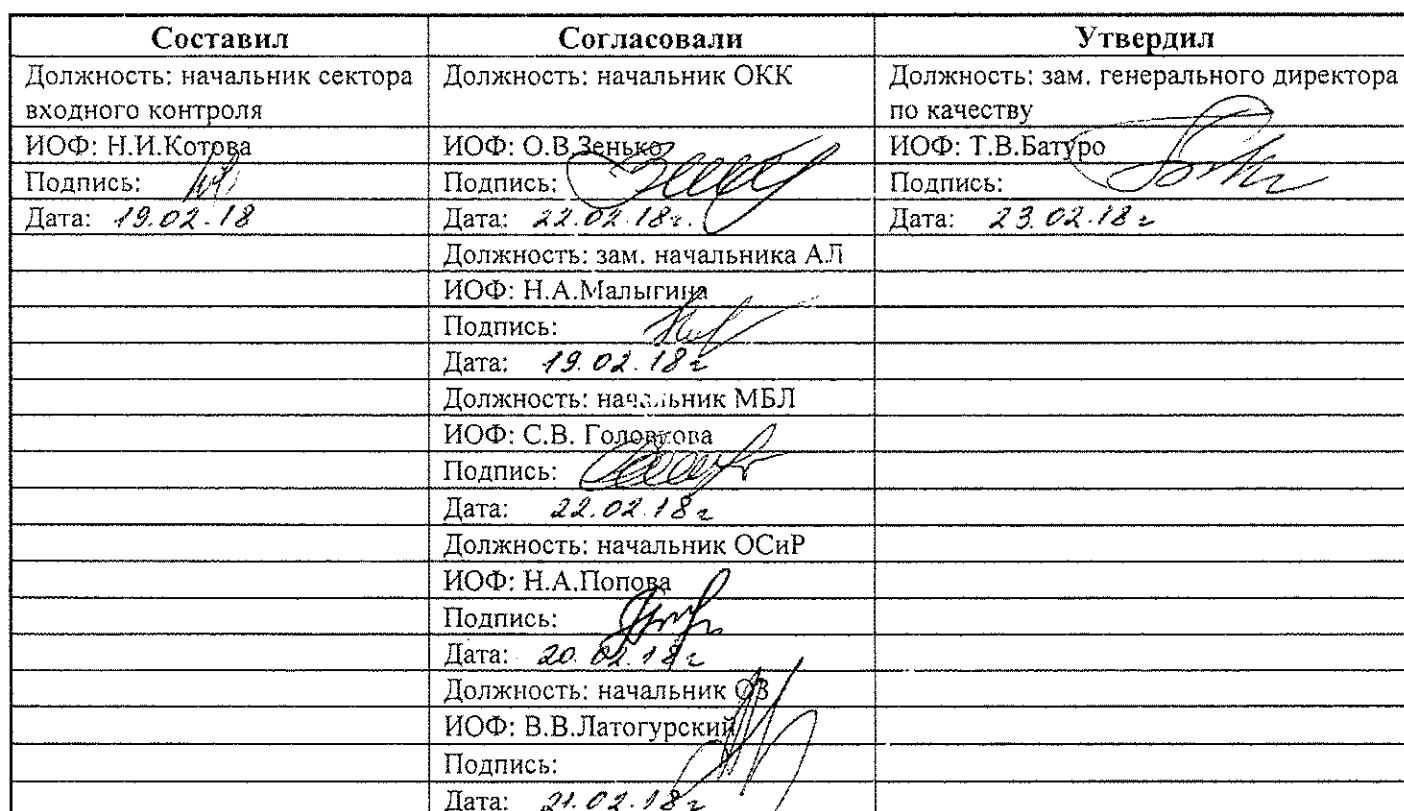 Составил Согласовали Утвердил
Должность: начальник сектора входного контроля Должность: начальник ОКК Должность: зам. генерального директора по качеству
ИОФ: Н.И.Котова ИОФ: О.В.Зенько ИОФ: Т.В.Батуро
Подпись: Подпись: Подпись:
Дата: 19.02.18 Дата: 22.02.18г. Дата: 23.02.18г
Должность: зам. начальника АЛ
ИОФ: Н.А.Малыгина
Подпись:
Дата: 19.02.18г
Должность: начальник МБЛ
ИОФ: С.В. Головкова
Подпись:
Дата: 22.02.18г
Должность: начальник ОСиР
ИОФ: Н.А.Попова
Подпись:
Дата: 20.02.18г
Должность: начальник ОЗ
ИОФ: В.В.Латогурский
Подпись:
Дата: 21.02.18г